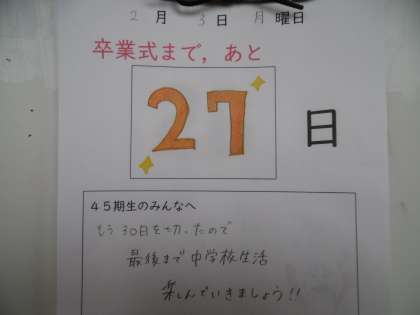 2月3日月曜日
卒業式まで，あと
27日
４５期生のみんなへ
もう30日を切ったので
最後まで中学校生活
楽しんでいきましょう!!